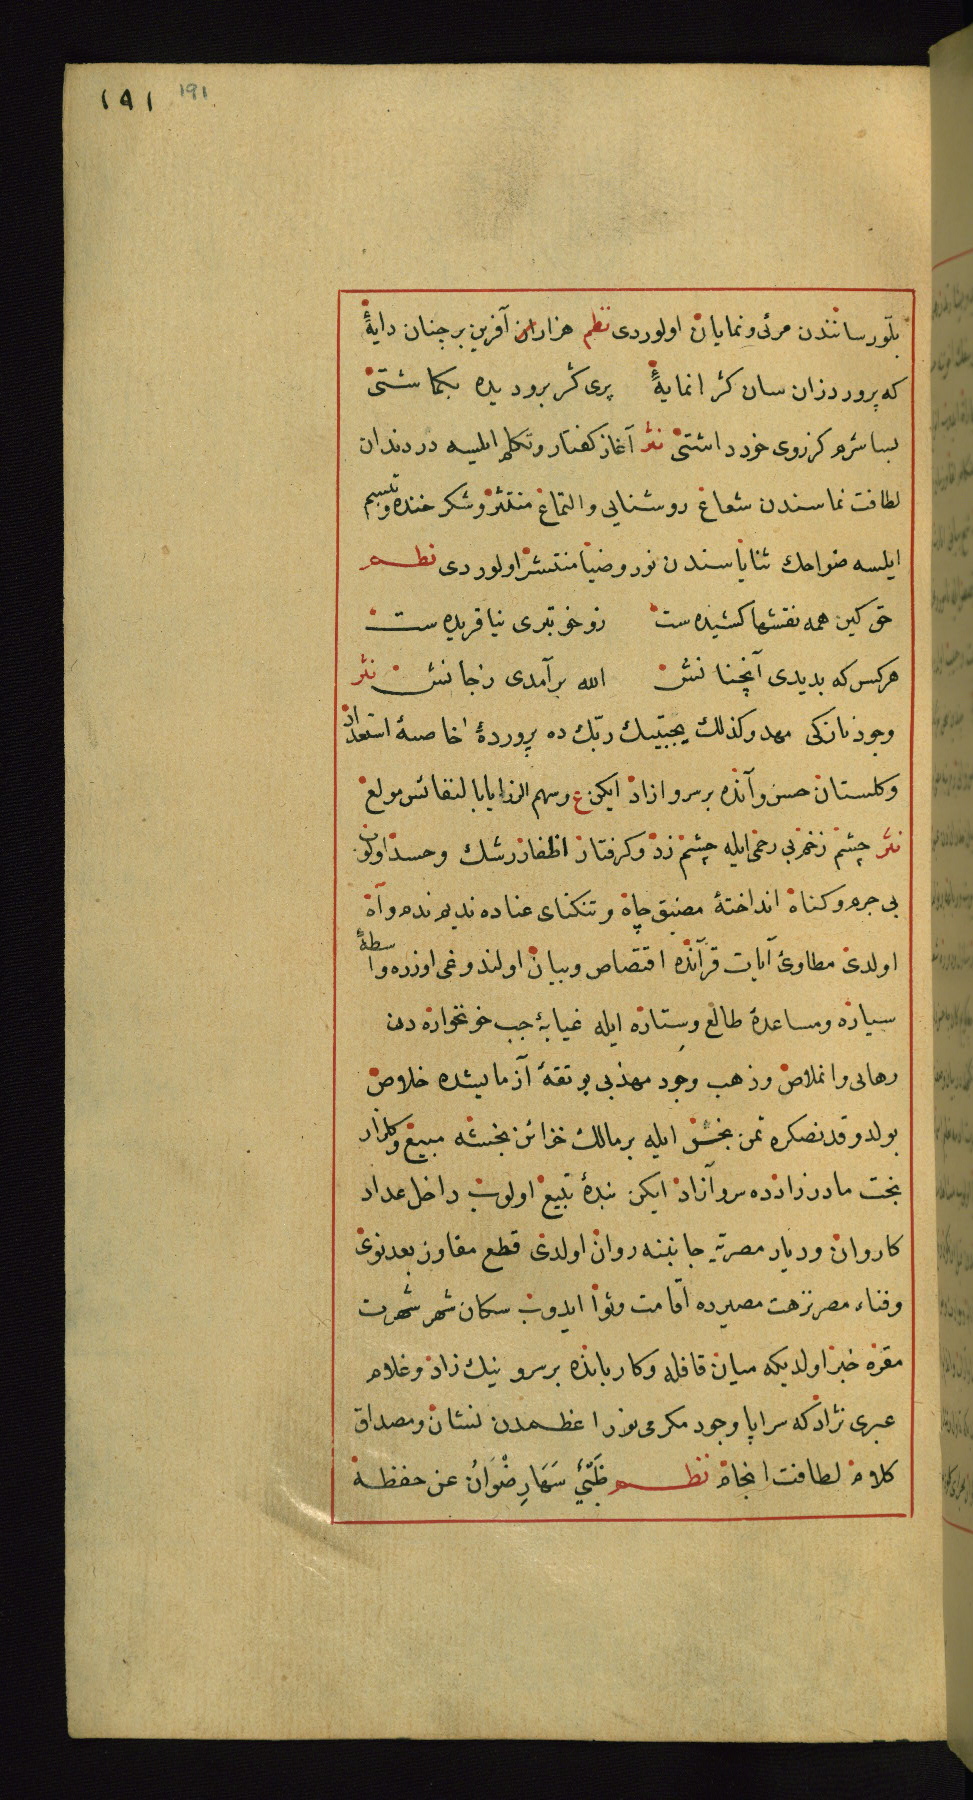 ١٩١ 191
بلّور ساننندن مرئی و نمایان اولوردی نظم هزاران آفرین بر چنان دایهٔ
که پرورد زان سان کرانمایهٔ پری کر برو دیده بکماشتی
بسا شرم کز روی خود داشتی نثر آغاز کفتار و تکلم ایلیسه در دندان
لطافت نماسندن شعاع روشنایی والتماع منتثر و شکر خنده و تبسم
ایلسه ضواحك ثنایاسندن نور و ضیا منتشر اولوردی نظم
حق کین همه نقشها کشیده ست زو خوبتری نیافریده ست
هر کس که بدیدی آنچنانش الله برآمدی زجانش نثر
وجود نازکی مهد وکذلك یجتبیك ربّك ده پروردهٔ خاصهٔ استعداد
وکلستان حسن وآنده بر سرو ازاد ایکن ع وسهم الرزایا بالنفائس مولع
نثر چشم زخم بی رحمی ایله چشم زد وکرفتار اظفار رشك وحسد اولوب
بی جرم وکناه انداختهٔ مضیق چاه وتنکنای عناده ندیم ندم وآه
اولدی مطاوئ آیات قرآنده اقتصاص وبیان اولندوغی اوزره واسطهٔ
سیاره ومساعدهٔ طالع وستاره ایله غیابهٔ جب خونخواره دن
رهایی وانملاص وذهب وجود مهذبی بوتقهٔ آزمایشده خلاص
بولدوقدنصکره ثمن بخس ایله بر مالك خزائن بخشه مبیع وکلزار
بخت مادرزادده سرو آزاد ایکن بندهٔ تبیع اولوب داخل عداد
کاروان ودیار مصریّه جانبنه روان اولدی قطع مفاوز بعد نوی
وفناء مصر نزهت مصیرده اقامت وثوا ایدوب سکان شهر شهرت
مقره خبر اولدیکه میان قافله وکاربانده بر سرو نیك زاد وغلام
عبری نژاد که سراپا وجود مکرمی نور اعظمدن نشان ومصداق
کلام لطافت انجام نظم ظَبْیٌ سَهَا رِضْوَانُ عن حفظه